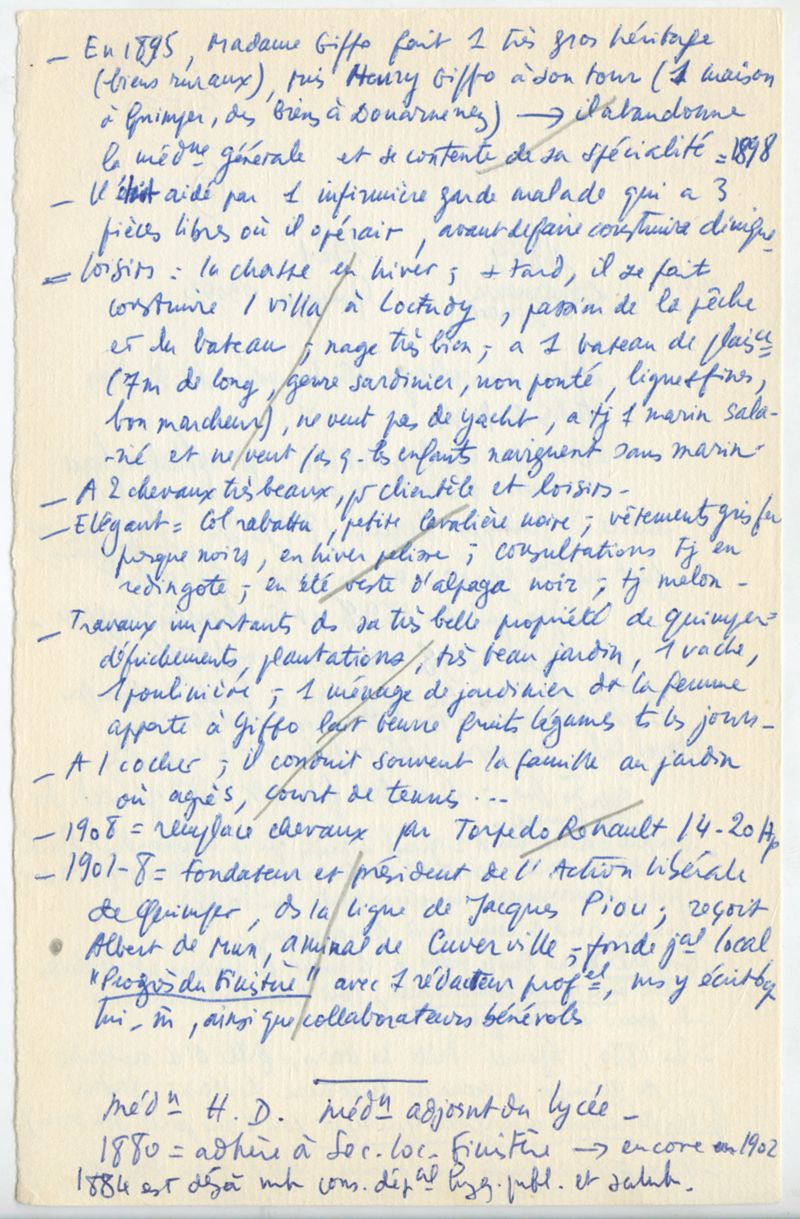 – En 1895, Madame Giffo fait 1 très gros héritage
(biens ruraux), puis Henry Giffo à son tour (1 maison
à Quimper, des Biens à Douarnenez) → il abandonne
la médne générale et se contente de sa spécialité = 1898
– Il était aidé par 1 infirmière garde malade qui a 3
pièces libres où il opérait, avant de faire construire clinique
= Loisirs = la chasse en hiver ; + tard, il se fait
construire 1 villa à Loctudy, passion de la pêche
et du bateau ; nage très bien ; a 1 bateau de plaisce
(7m de long, genre sardinier, non ponté, lignes fines,
bon marcheur), ne veut pas de yacht, a tj 1 marin sala-
-rié et ne veut pas q. les enfants naviguent sans marin.
– A 2 chevaux très beaux, pr clientèle et loisirs –
– Elégant = Col rabattu, petite lavalière noire ; vêtements gris fer
presque noirs, en hiver pelisse ; consultations tj en
redingote ; en été veste d'alpaga noir ; tj melon –
– Travaux importants ds sa très belle propriété de Quimper =
défrichements, plantations, très beau jardin, 1 vache,
1 poulinière ; 1 ménage de jardinier dt la femme
apporte à Giffo lait beurre fruits légumes ts les jours –
– A 1 cocher ; il conduit souvent la famille au jardin
où agrès, court de tennis ...
– 1908 = remplace chevaux par Torpedo Renault 14-20 Hp
– 1901-8 = Fondateur et président de l'Action libérale
de Quimper, ds la ligne de Jacques Piou ; reçoit
Albert de Mun, amiral de Cuverville ; fonde jal local
"Progrès du Finistère" avec 1 rédacteur profel, ms y écrit bcp
lui-m̄, ainsi que collaborateurs bénévoles
Médn H.D. Médn adjoint du lycée –
1880 = adhère à Soc. loc. Finistère → encore en 1902
1884 est déjà mb cons. dépal hyg. publ. et salub.